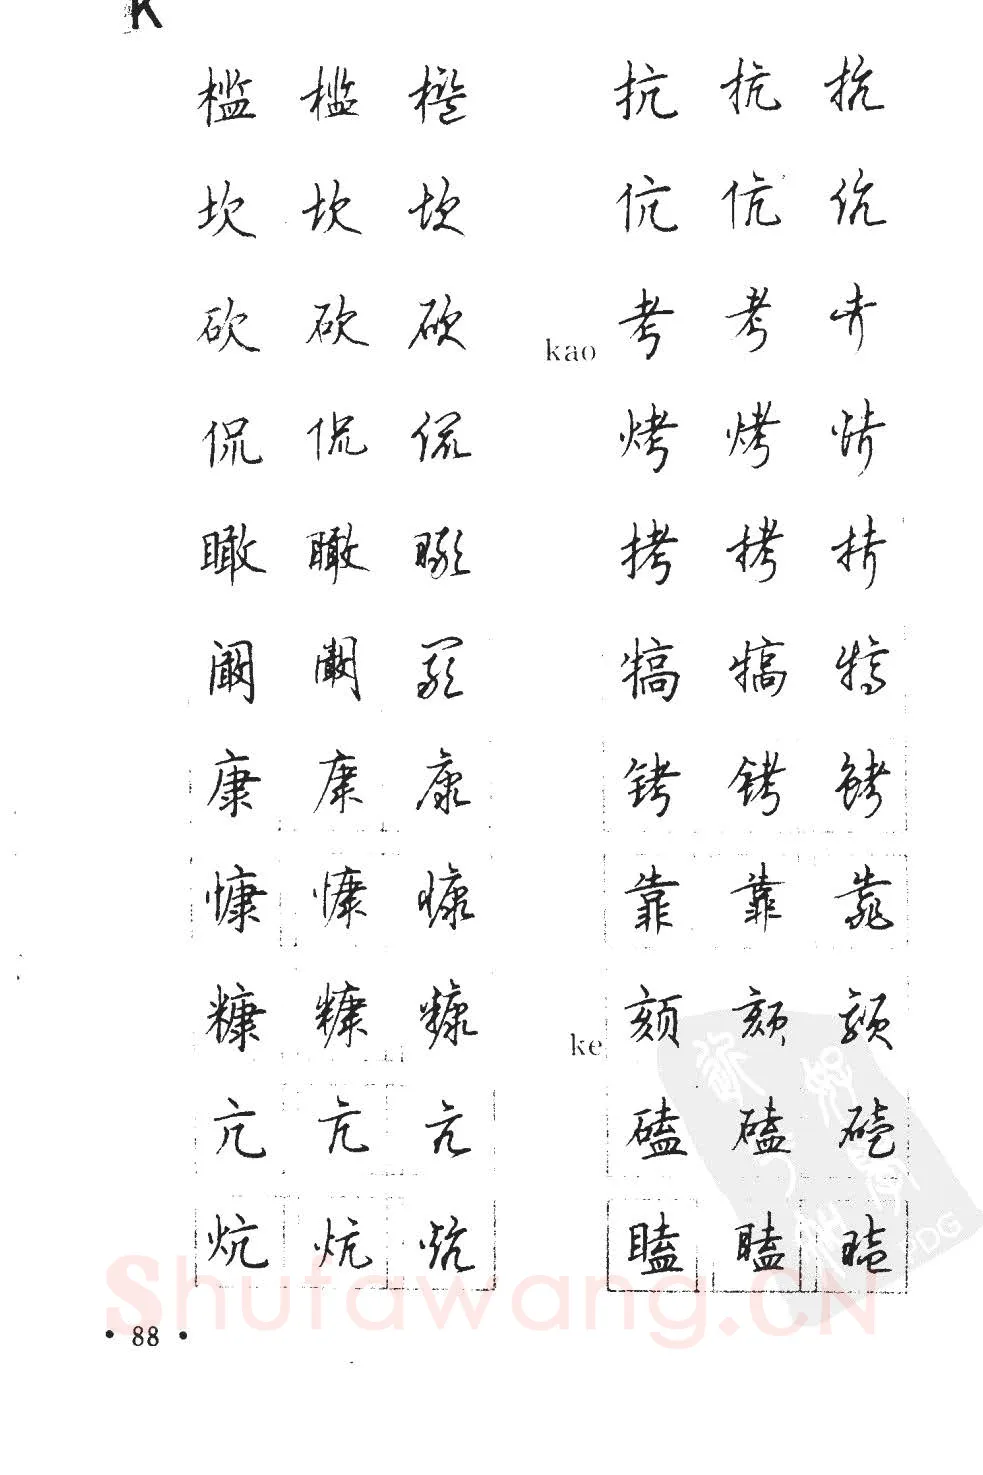 K
槛 槛 槛
坎 坎 坎
砍 砍 砍
侃 侃 侃
瞰 瞰 瞰
阚 阚 阚
康 康 康
慷 慷 慷
糠 糠 糠
亢 亢 亢
炕 炕 炕
抗 抗 抗
伉 伉 伉
kao 考 考 考
烤 烤 烤
拷 拷 拷
犒 犒 犒
铐 铐 铐
靠 靠 靠
ke 颏 颏 颏
磕 磕 磕
瞌 瞌 瞌
• 88 •
Shufawang.CN
PDG